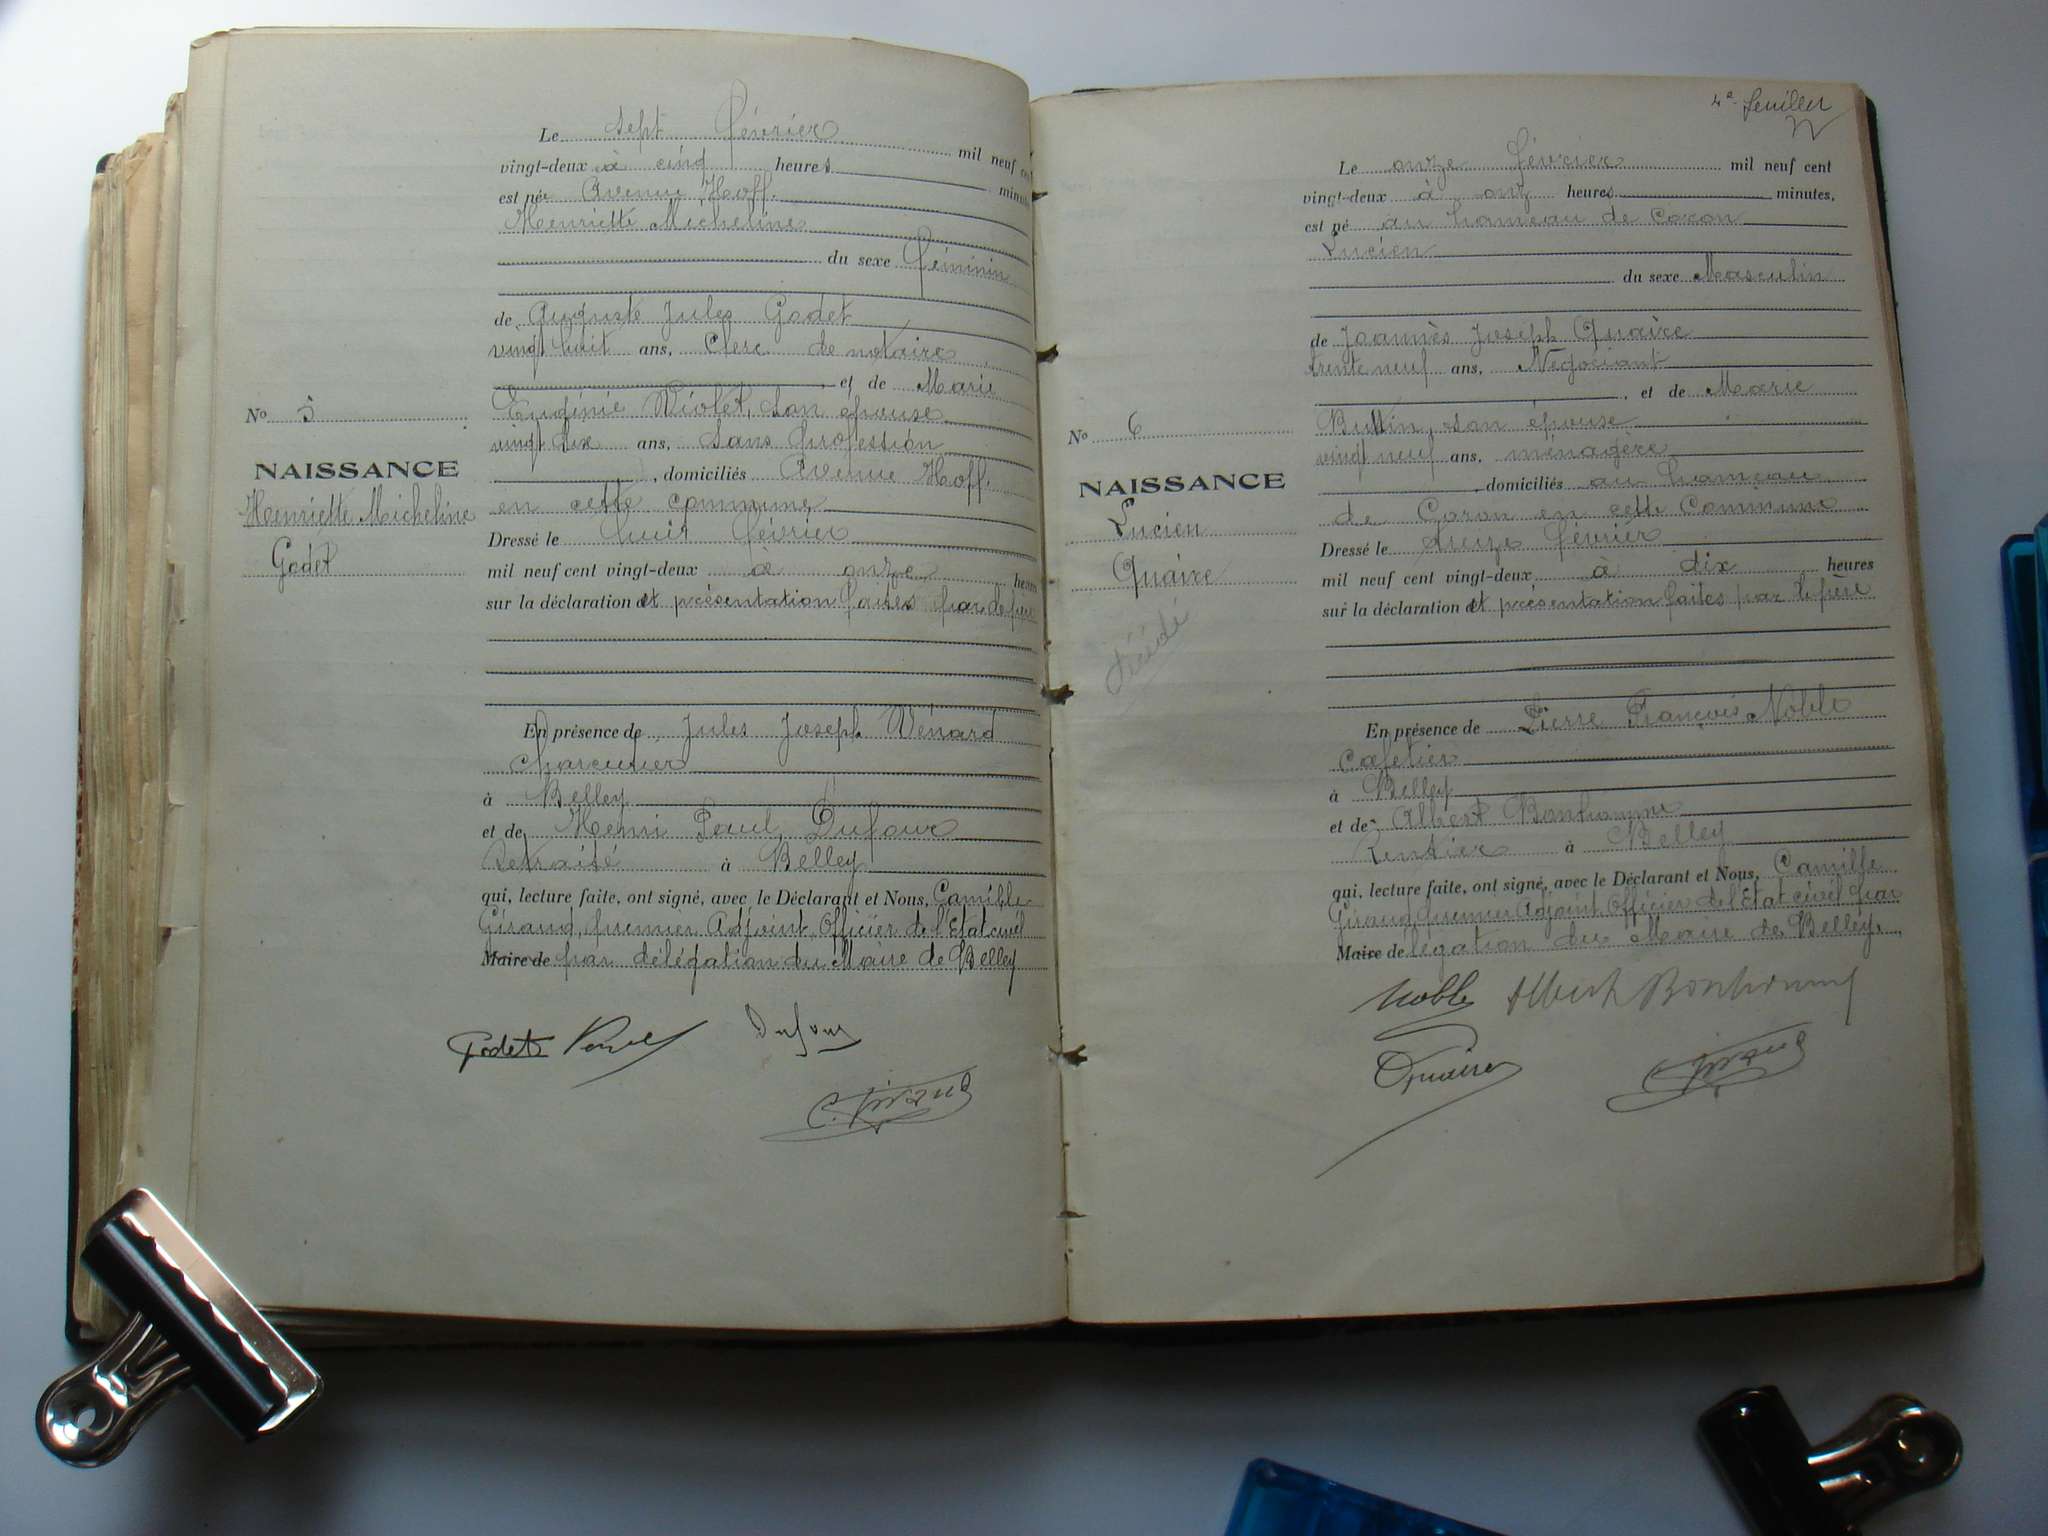 Le sept février mil neuf cent
vingt-deux à cinq heures minutes
est née Avenue Hoff.
Henriette Micheline
du sexe féminin
de Auguste Jules Godet
vingt huit ans, Clerc de notaire
, et de Marie
Eugénie Violet, son épouse
vingt six ans, sans profession
, domiciliés Avenue Hoff.
en cette commune
Dressé le huit février
mil neuf cent vingt-deux à onze heures
sur la déclaration et présentation faites par le père
No 5
NAISSANCE
Henriette Micheline
Godet
En présence de Jules Joseph Vénard
charcutier
à Belley
et de Henri Paul Dufour
Retraité à Belley
qui, lecture faite, ont signé, avec le Déclarant et Nous, Camille
Giraud, premier Adjoint, Officier de l'Etat civil
Maire de par délégation du Maire de Belley
Godet Dufour
C. Giraud
4e feuillet
Le onze février mil neuf cent
vingt-deux à onze heures minutes,
est né au hameau de Coron
Lucien
du sexe Masculin
de Joannès Joseph Quaire
trente neuf ans, Négociant
, et de Marie
Buttin, son épouse
vingt neuf ans, ménagère
, domiciliés au hameau
de Coron en cette Commune
Dressé le février
mil neuf cent vingt-deux à dix heures
sur la déclaration et présentation faites par le père
No 6
NAISSANCE
Lucien
Quaire
décédé
En présence de Pierre François Noble
Cafetier
à Belley
et de Albert Bonhomme
Rentier à Belley
qui, lecture faite, ont signé, avec le Déclarant et Nous, Camille
Giraud premier Adjoint Officier de l'Etat civil par
Maire de légation du Maire de Belley.
Noble Albert Bonhomme
Quaire C. Giraud